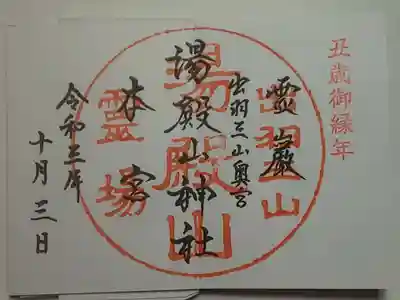 丑歳御縁年
霊巌
出羽三山奥宮
湯殿山神社
本宮
令和三年
十月三日
湯殿山
霊場